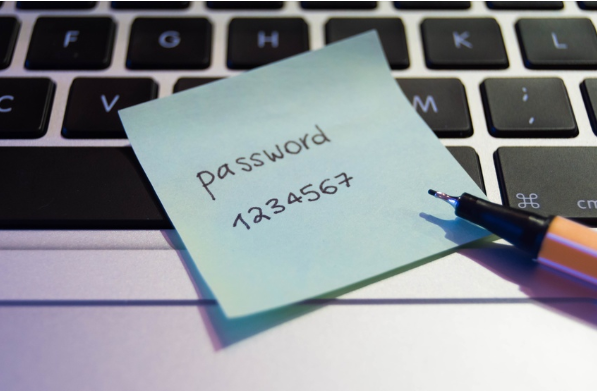 F G H K L
C V M ; :
password
1234567
⌘ cm